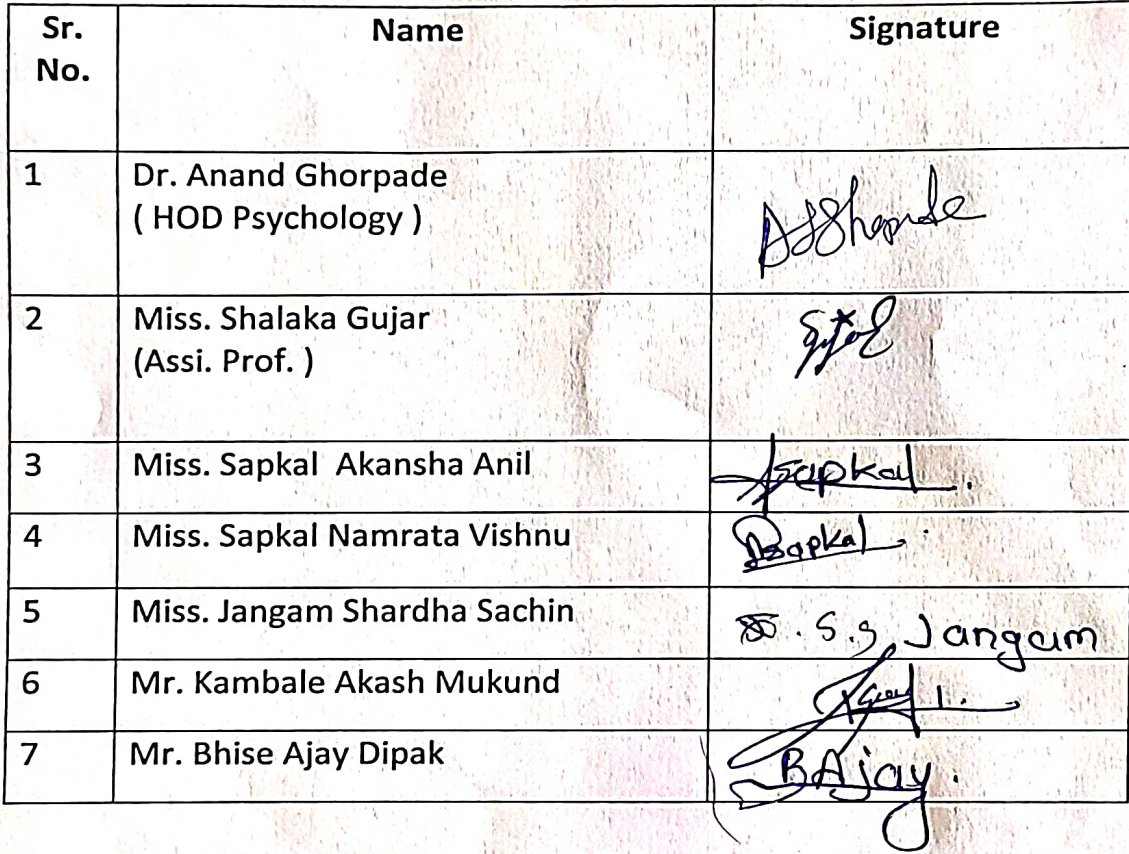 Sr. No. Name Signature
1 Dr. Anand Ghorpade
( HOD Psychology )
2 Miss. Shalaka Gujar
(Assi. Prof. )
3 Miss. Sapkal Akansha Anil Asapkal.
4 Miss. Sapkal Namrata Vishnu Nsapkal.
5 Miss. Jangam Shardha Sachin S.S Jangam
6 Mr. Kambale Akash Mukund
7 Mr. Bhise Ajay Dipak BAjay.